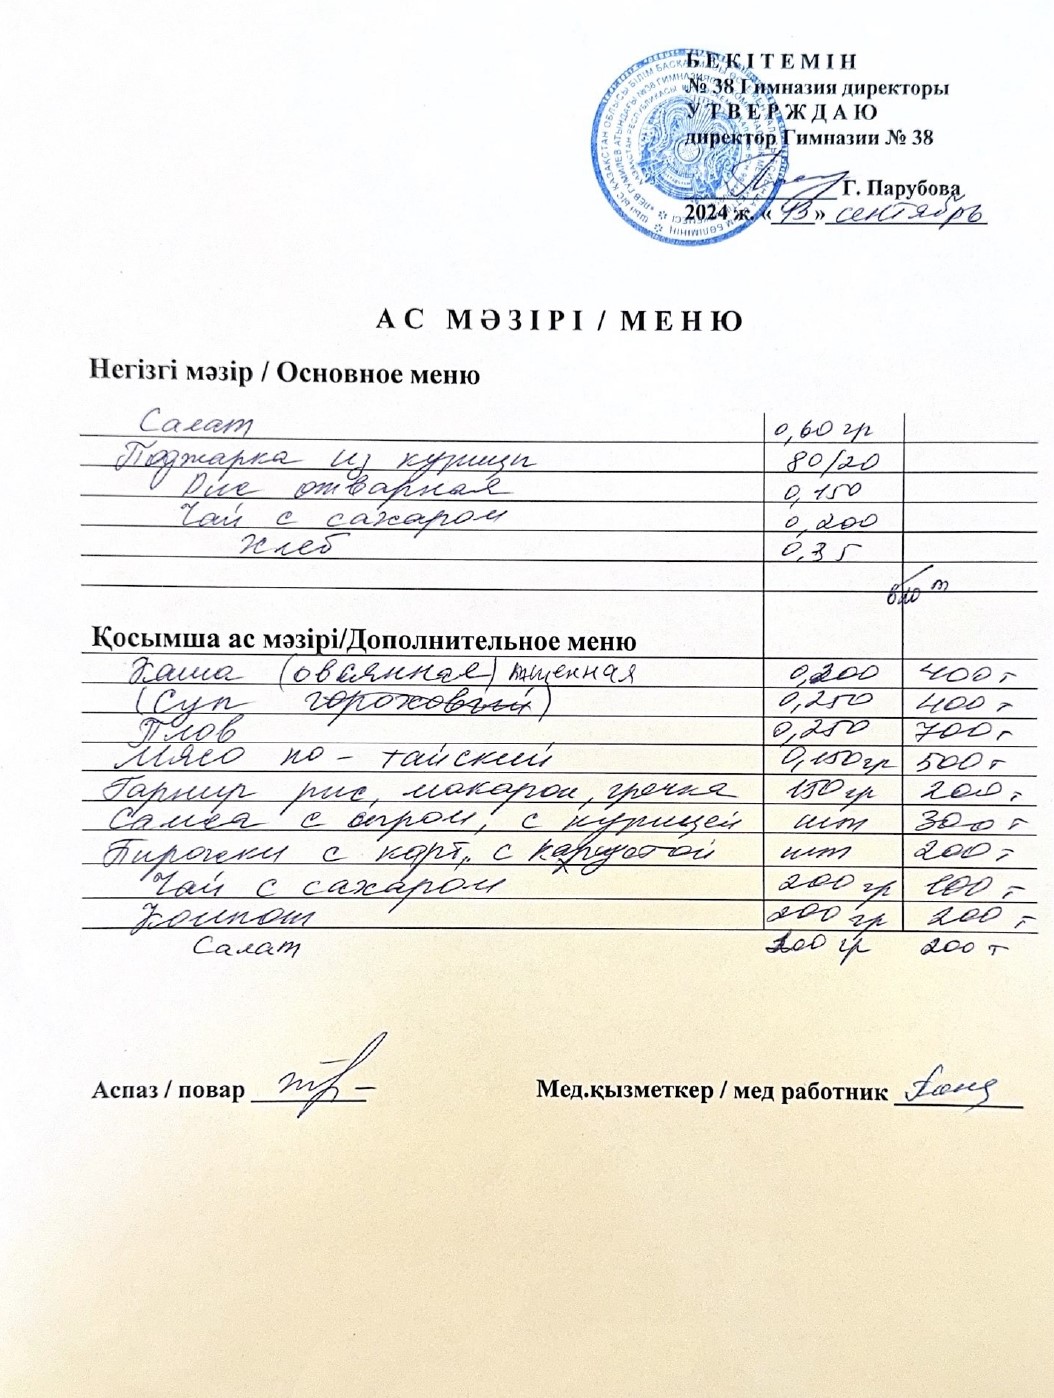 БЕКІТЕМІН
№ 38 Гимназия директоры
УТВЕРЖДАЮ
директор Гимназии № 38
Г. Парубова
2024 ж. «13» сентябрь
АС МӘЗІРІ / МЕНЮ
Негізгі мәзір / Основное меню
Салат 0,60 гр
Поджарка из курицы 80/20
Рис отварная 0,150
Чай с сахаром 0,200
Хлеб 0,35
Қосымша ас мәзірі/Дополнительное меню
Каша (овсянная) пшенная 0,200 400 т
(Суп гороховый) 0,250 400 т
Плов 0,250 700 т
Мясо по-тайский 0,150 гр 500 т
Гарнир рис, макарон, гречка 150 гр 200 т
Самса с сыром, с курицей шт 300 т
Пирожки с карт, с капустой шт 200 т
Чай с сахаром 200 гр 100 т
Компот 200 гр 200 т
Салат 100 гр 200 т
Аспаз / повар Мед.қызметкер / мед работник